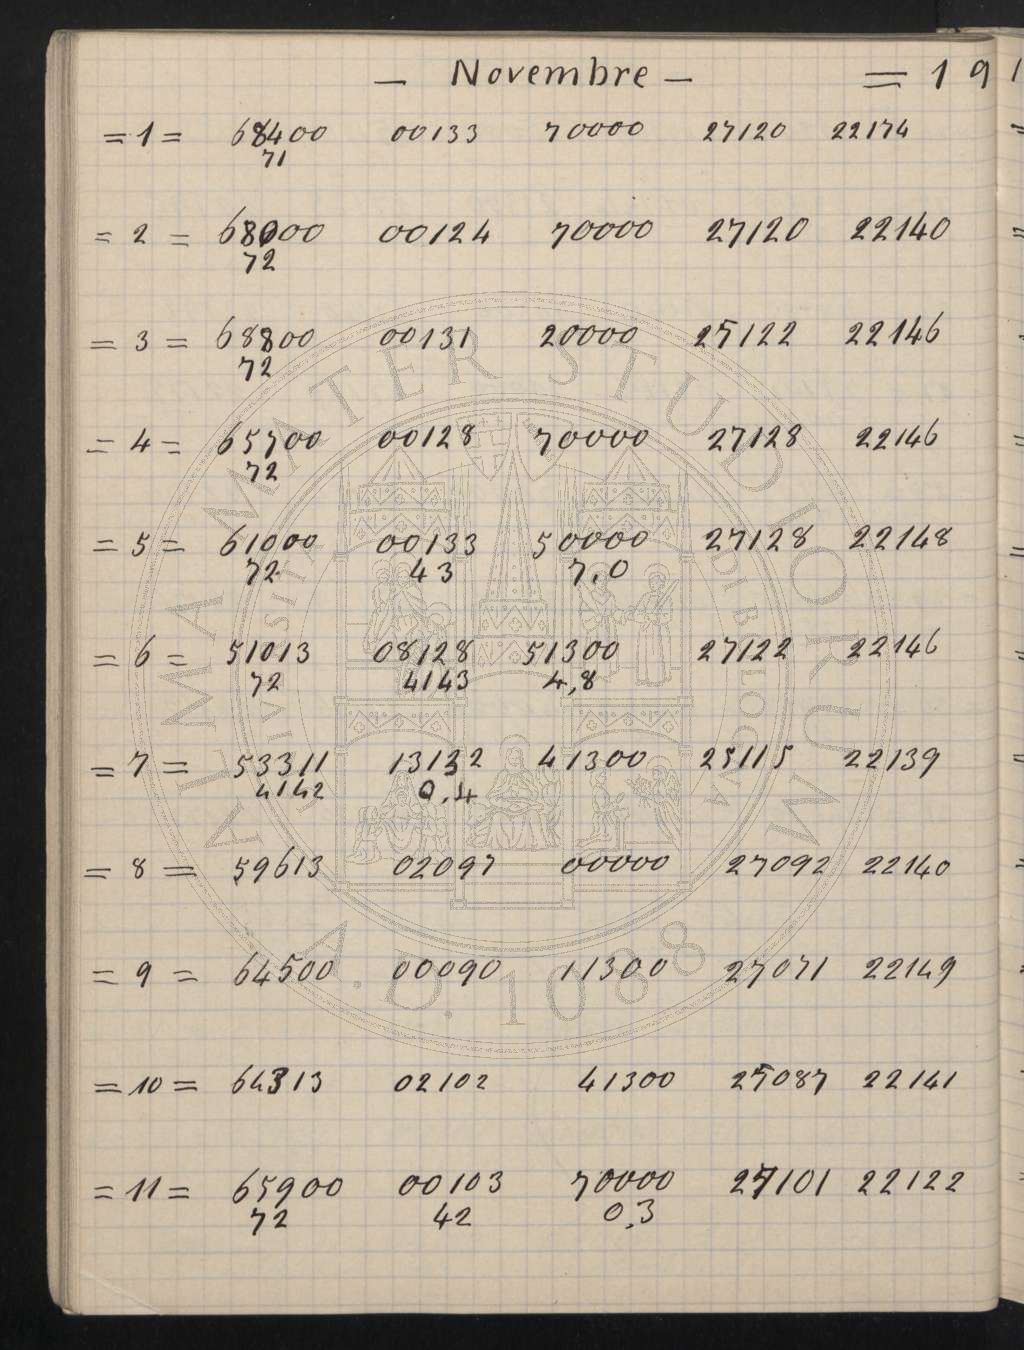 — Novembre — = 191
= 1 = 68400 00133 70000 27120 22174
71
= 2 = 68000 00124 70000 27120 22140
72
= 3 = 68800 00131 20000 25122 22146
72
= 4 = 65700 00128 70000 27128 22146
72
= 5 = 61000 00133 50000 27128 22148
72 43 7,0
= 6 = 51013 08128 51300 27122 22146
72 4143 4,8
= 7 = 53311 13132 41300 25115 22139
4142 0,4
= 8 = 59613 02097 00000 27092 22140
= 9 = 64500 00090 11300 27071 22149
= 10 = 64313 02102 41300 25087 22141
= 11 = 65900 00103 70000 27101 22122
72 42 0,3
ALMA MATER STUDIORUM
A.D. 1088